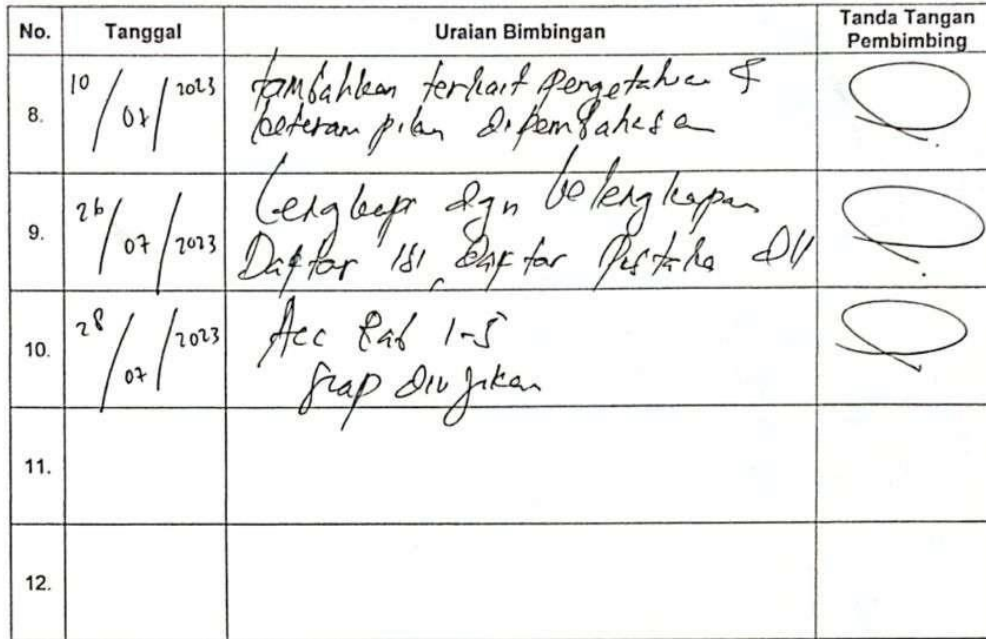 No. Tanggal Uraian Bimbingan Tanda Tangan
Pembimbing
8. 10/07/2023 tambahkan terkait pengetahuan &
keterampilan dipembahasan
9. 26/07/2023 Lengkapi dgn kelengkapan
Daftar isi, Daftar Pustaka dll
10. 28/07/2023 Acc Bab 1-5
siap diujikan
11.
12.